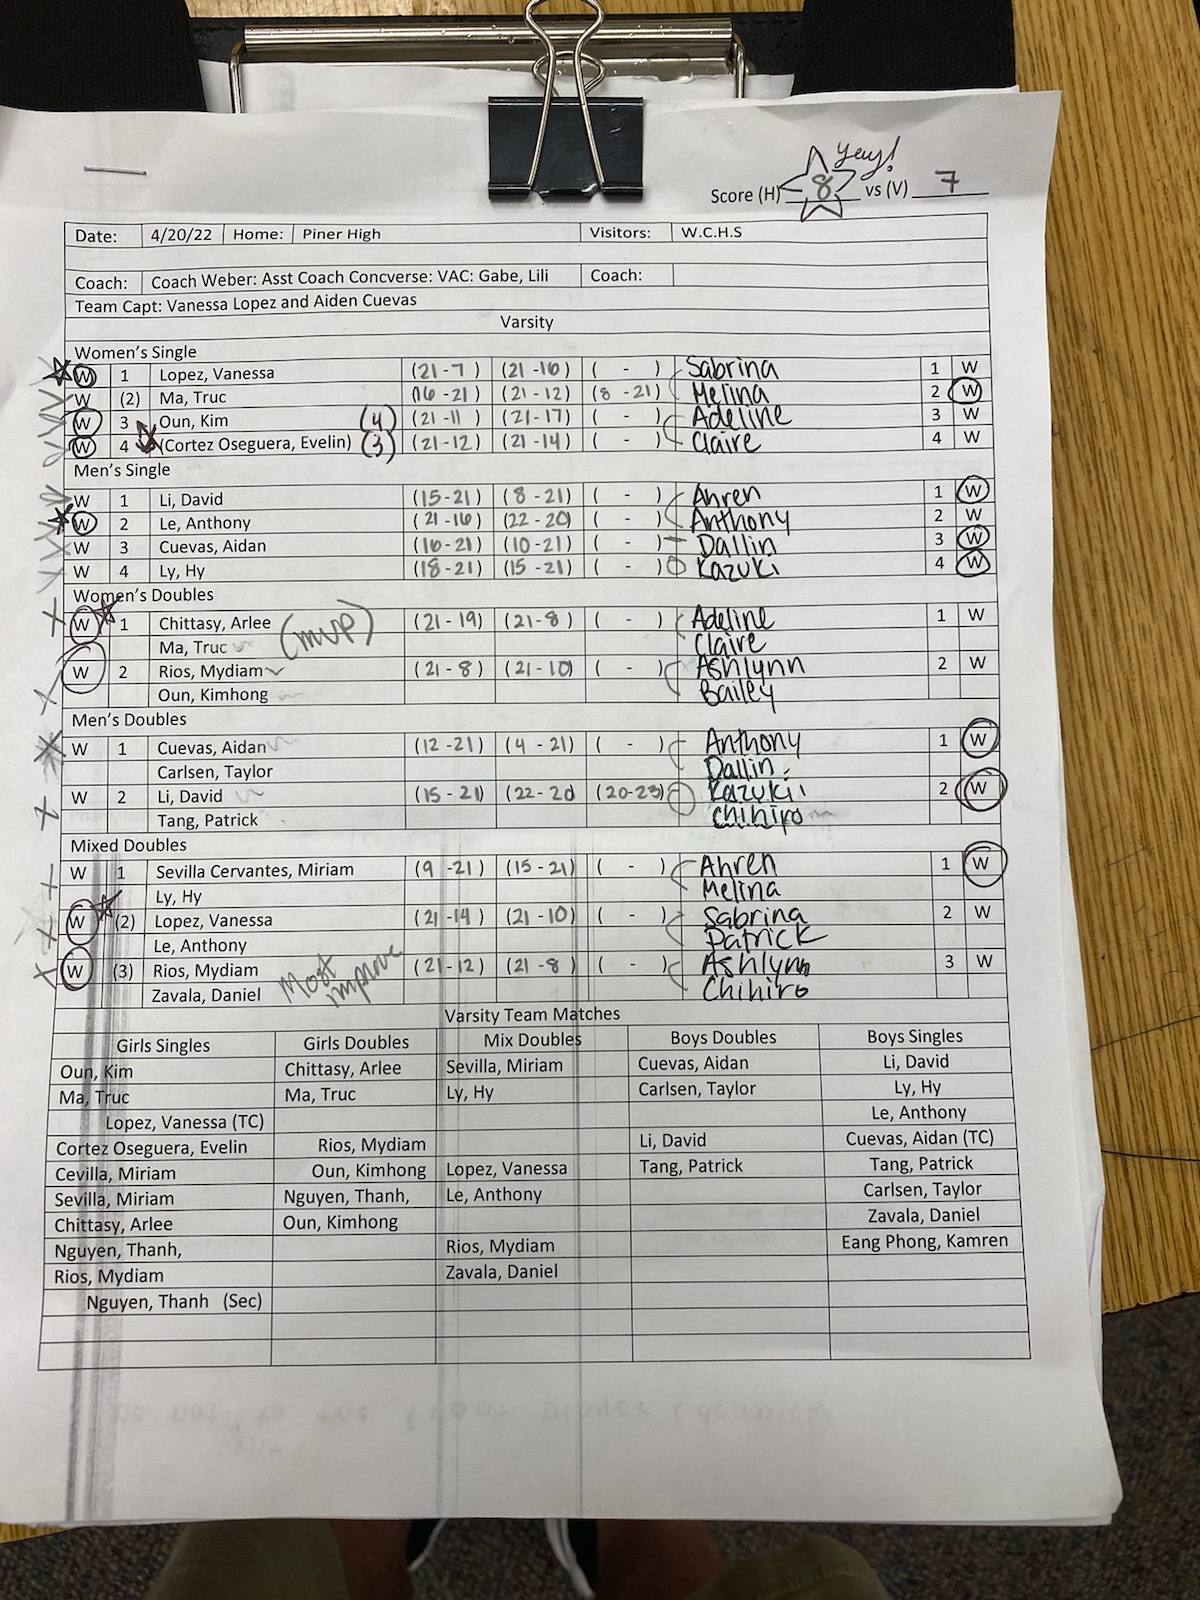 Yay!
Score (H) 8 vs (V) 7
Date: 4/20/22 Home: Piner High Visitors: W.C.H.S
Coach: Coach Weber: Asst Coach Concverse: VAC: Gabe, Lili Coach:
Team Capt: Vanessa Lopez and Aiden Cuevas
Varsity
Women's Single
W 1 Lopez, Vanessa (21-7) (21-10) ( - ) Sabrina 1 W
W (2) Ma, Truc (16-21) (21-12) (8-21) Melina 2 W
W 3 Oun, Kim (4) (21-11) (21-17) ( - ) Adeline 3 W
W 4 (Cortez Oseguera, Evelin) (3) (21-12) (21-14) ( - ) Claire 4 W
Men's Single
W 1 Li, David (15-21) (8-21) ( - ) Ahren 1 W
W 2 Le, Anthony (21-16) (22-20) ( - ) Anthony 2 W
W 3 Cuevas, Aidan (10-21) (10-21) ( - ) Dallin 3 W
W 4 Ly, Hy (18-21) (15-21) ( - ) Kazuki 4 W
Women's Doubles
W 1 Chittasy, Arlee (MVP) (21-19) (21-8) ( - ) Adeline 1 W
Ma, Truc Claire
W 2 Rios, Mydiam (21-8) (21-10) ( - ) Ashlynn 2 W
Oun, Kimhong Bailey
Men's Doubles
W 1 Cuevas, Aidan (12-21) (4-21) ( - ) Anthony 1 W
Carlsen, Taylor Dallin
W 2 Li, David (15-21) (22-20) (20-23) Kazuki 2 W
Tang, Patrick Chihiro
Mixed Doubles
W 1 Sevilla Cervantes, Miriam (9-21) (15-21) ( - ) Ahren 1 W
Ly, Hy Melina
W (2) Lopez, Vanessa (21-14) (21-10) ( - ) Sabrina 2 W
Le, Anthony Patrick
W (3) Rios, Mydiam Most improve (21-12) (21-8) ( - ) Ashlynn 3 W
Zavala, Daniel Chihiro
Varsity Team Matches
Girls Singles Girls Doubles Mix Doubles Boys Doubles Boys Singles
Oun, Kim Chittasy, Arlee Sevilla, Miriam Cuevas, Aidan Li, David
Ma, Truc Ma, Truc Ly, Hy Carlsen, Taylor Ly, Hy
Lopez, Vanessa (TC) Le, Anthony
Cortez Oseguera, Evelin Rios, Mydiam Li, David Cuevas, Aidan (TC)
Cevilla, Miriam Oun, Kimhong Lopez, Vanessa Tang, Patrick Tang, Patrick
Sevilla, Miriam Nguyen, Thanh, Le, Anthony Carlsen, Taylor
Chittasy, Arlee Oun, Kimhong Zavala, Daniel
Nguyen, Thanh, Rios, Mydiam Eang Phong, Kamren
Rios, Mydiam Zavala, Daniel
Nguyen, Thanh (Sec)